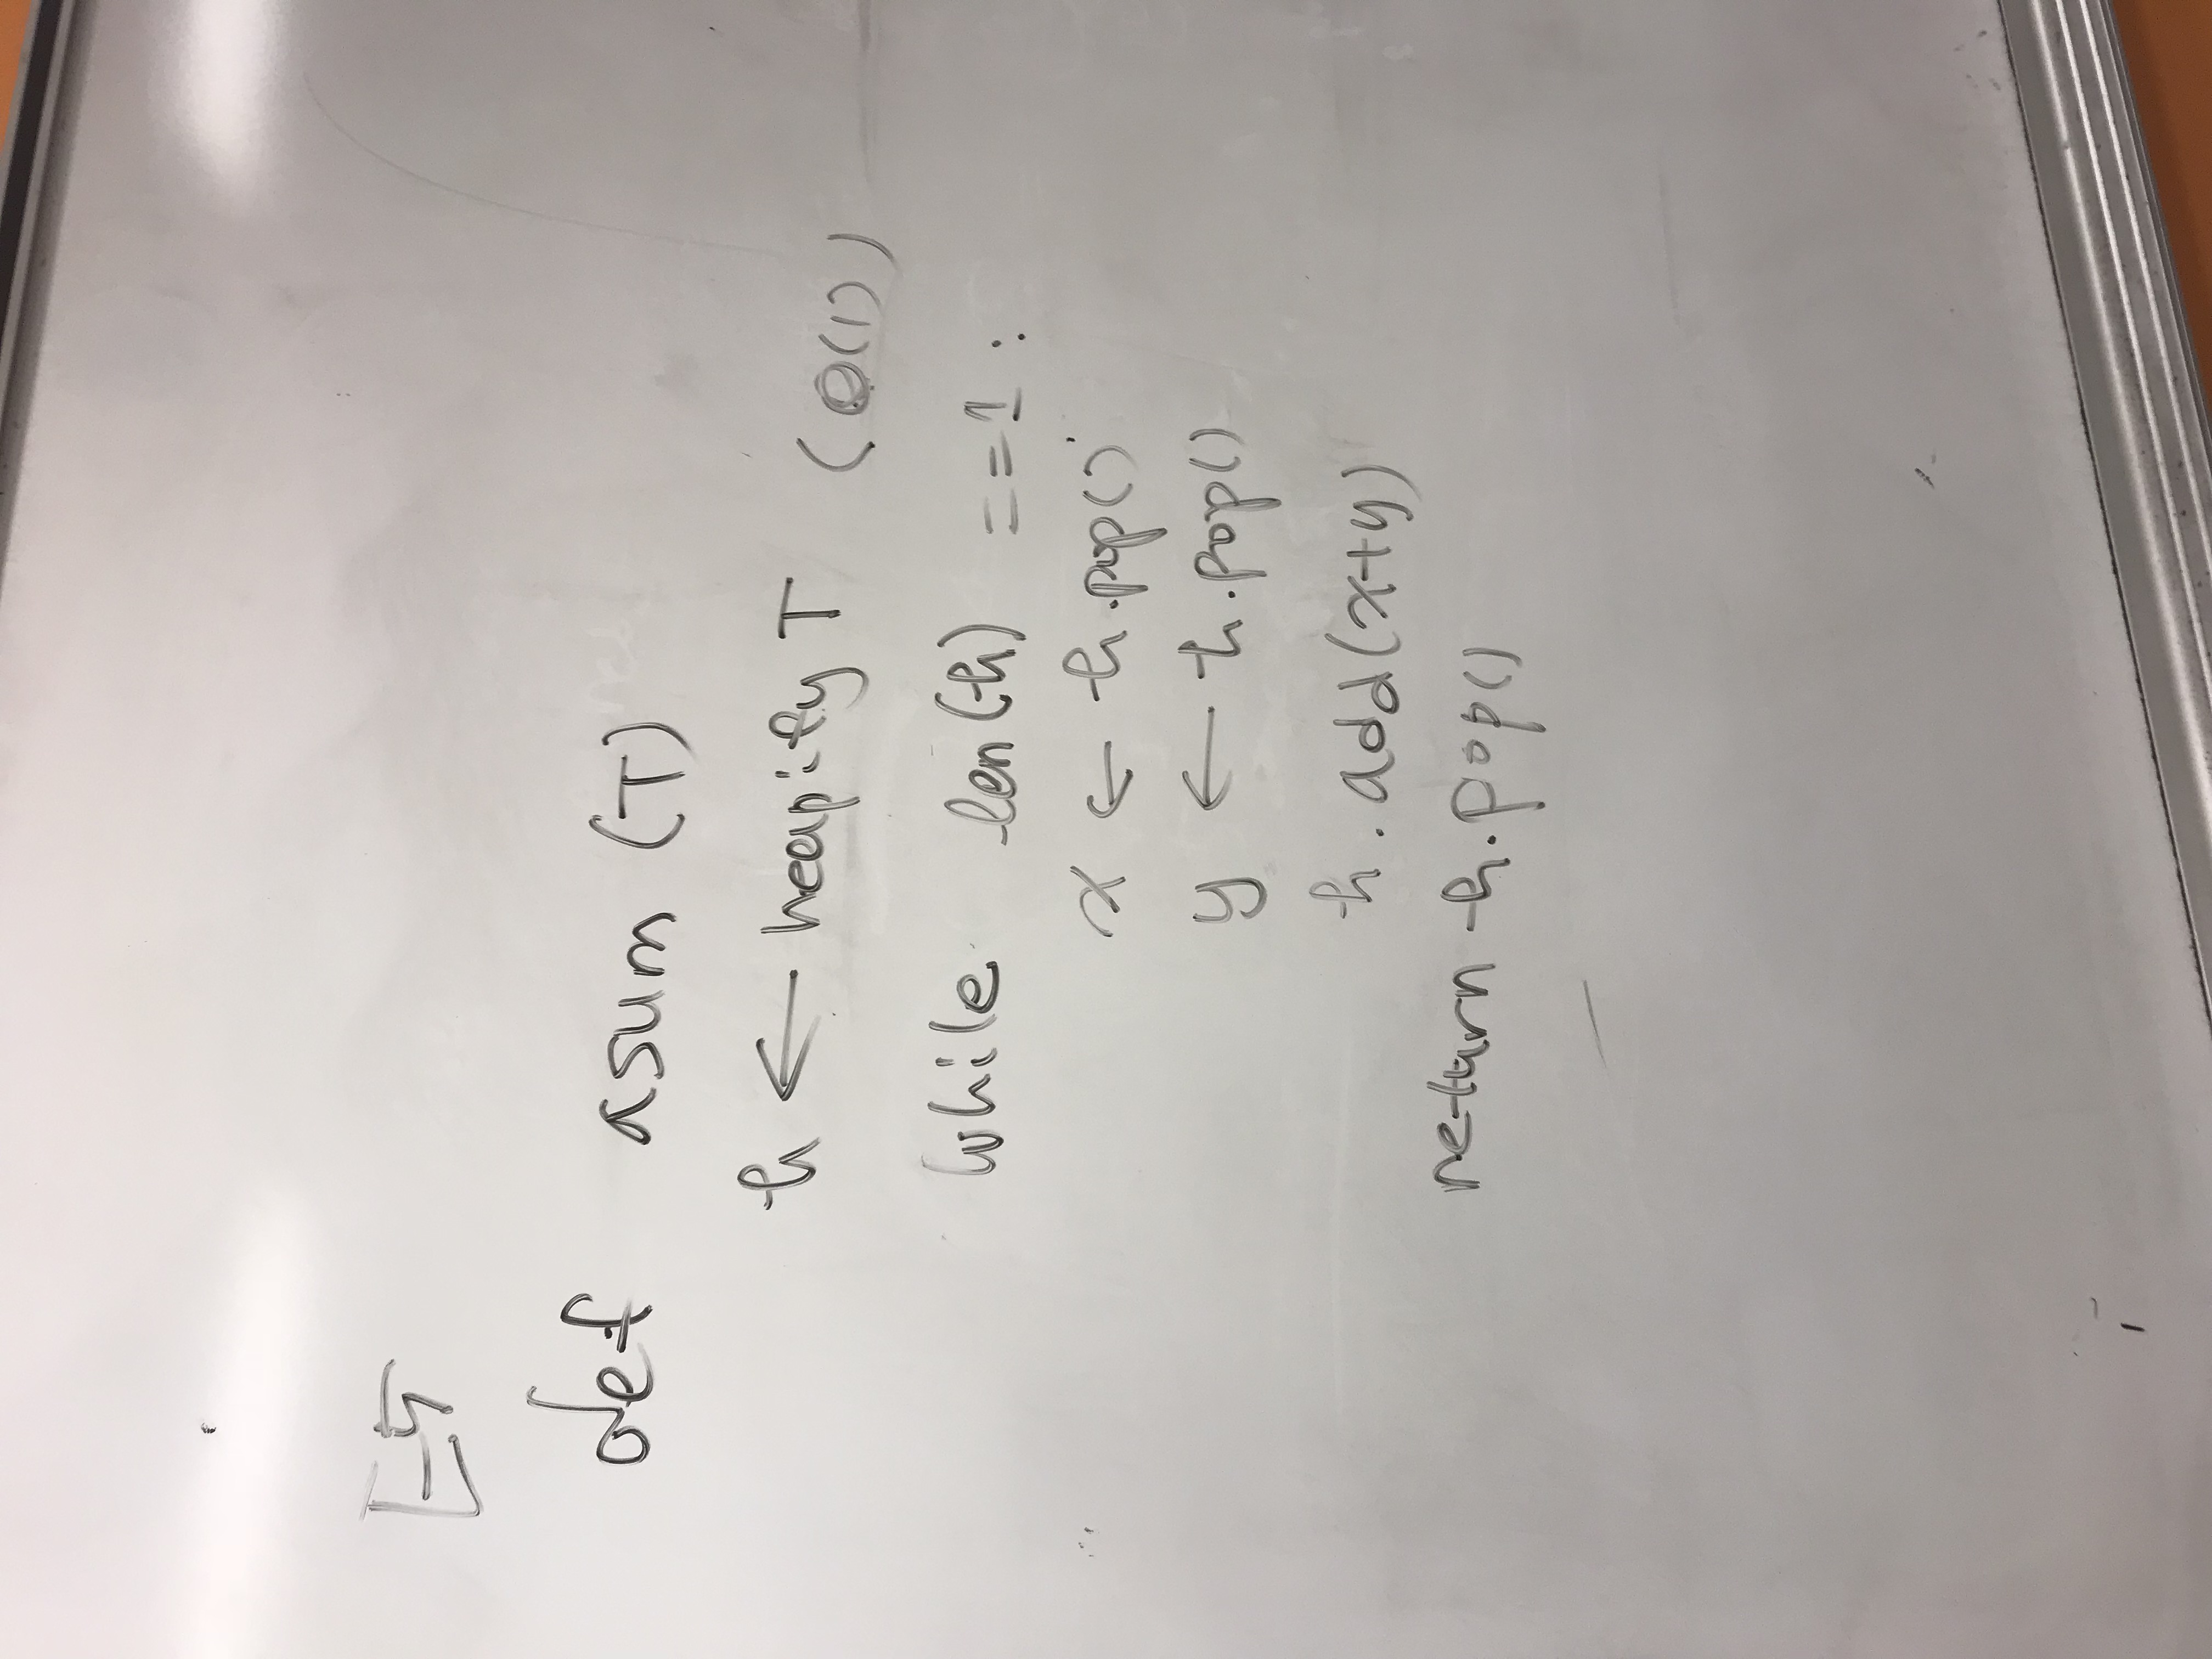 E5
def asum (T)
h ← heapify T (Θ(1))
while len(h) ==1 :
x ← h.pop()
y ← h.pop()
h.add(x+y)
return h.pop()